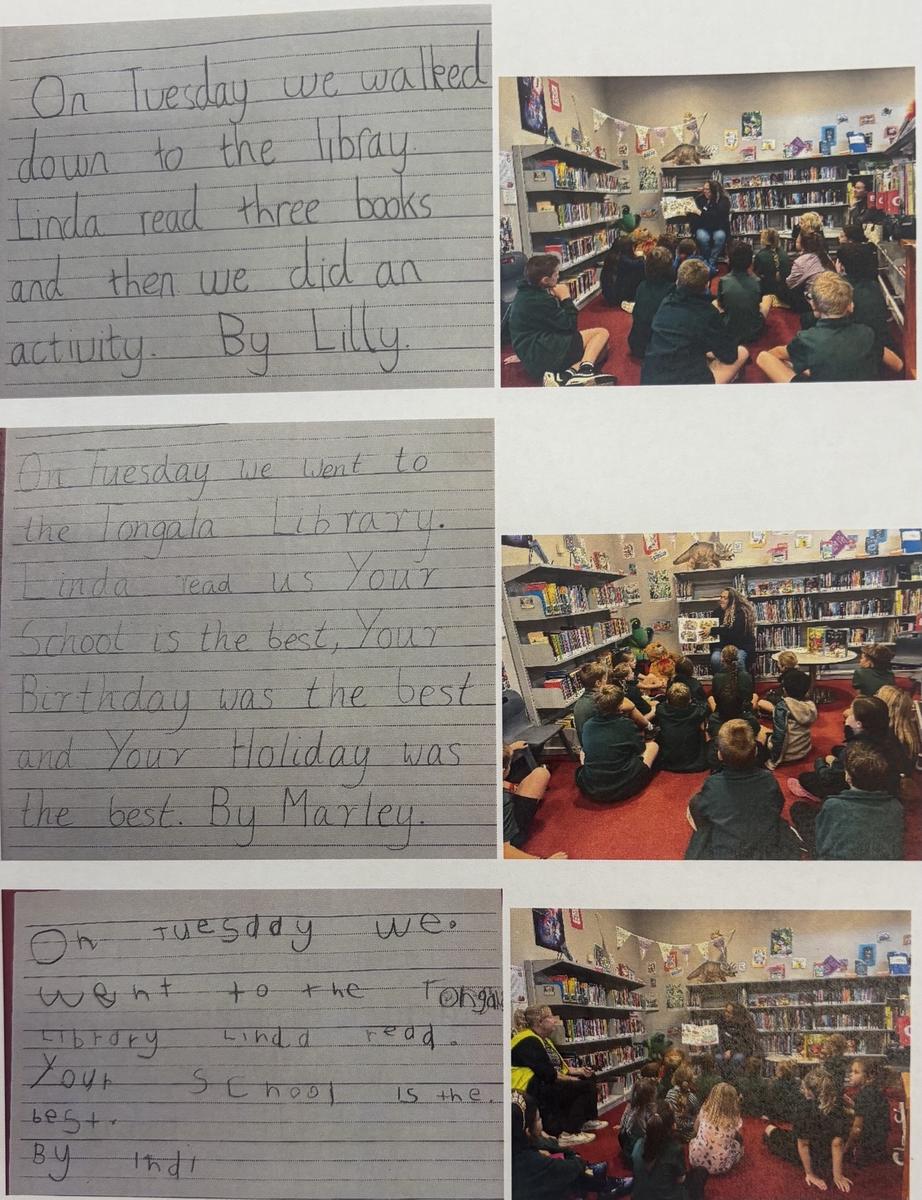 On Tuesday we walked
down to the libray.
Linda read three books
and then we did an
activity. By Lilly.
On Tuesday we went to
the Tongala Library.
Linda read us Your
School is the best, Your
Birthday was the best
and Your Holiday was
the best. By Marley.
On Tuesday we.
went to the Tongala
Library Linda read.
Your School is the.
best.
By Indi